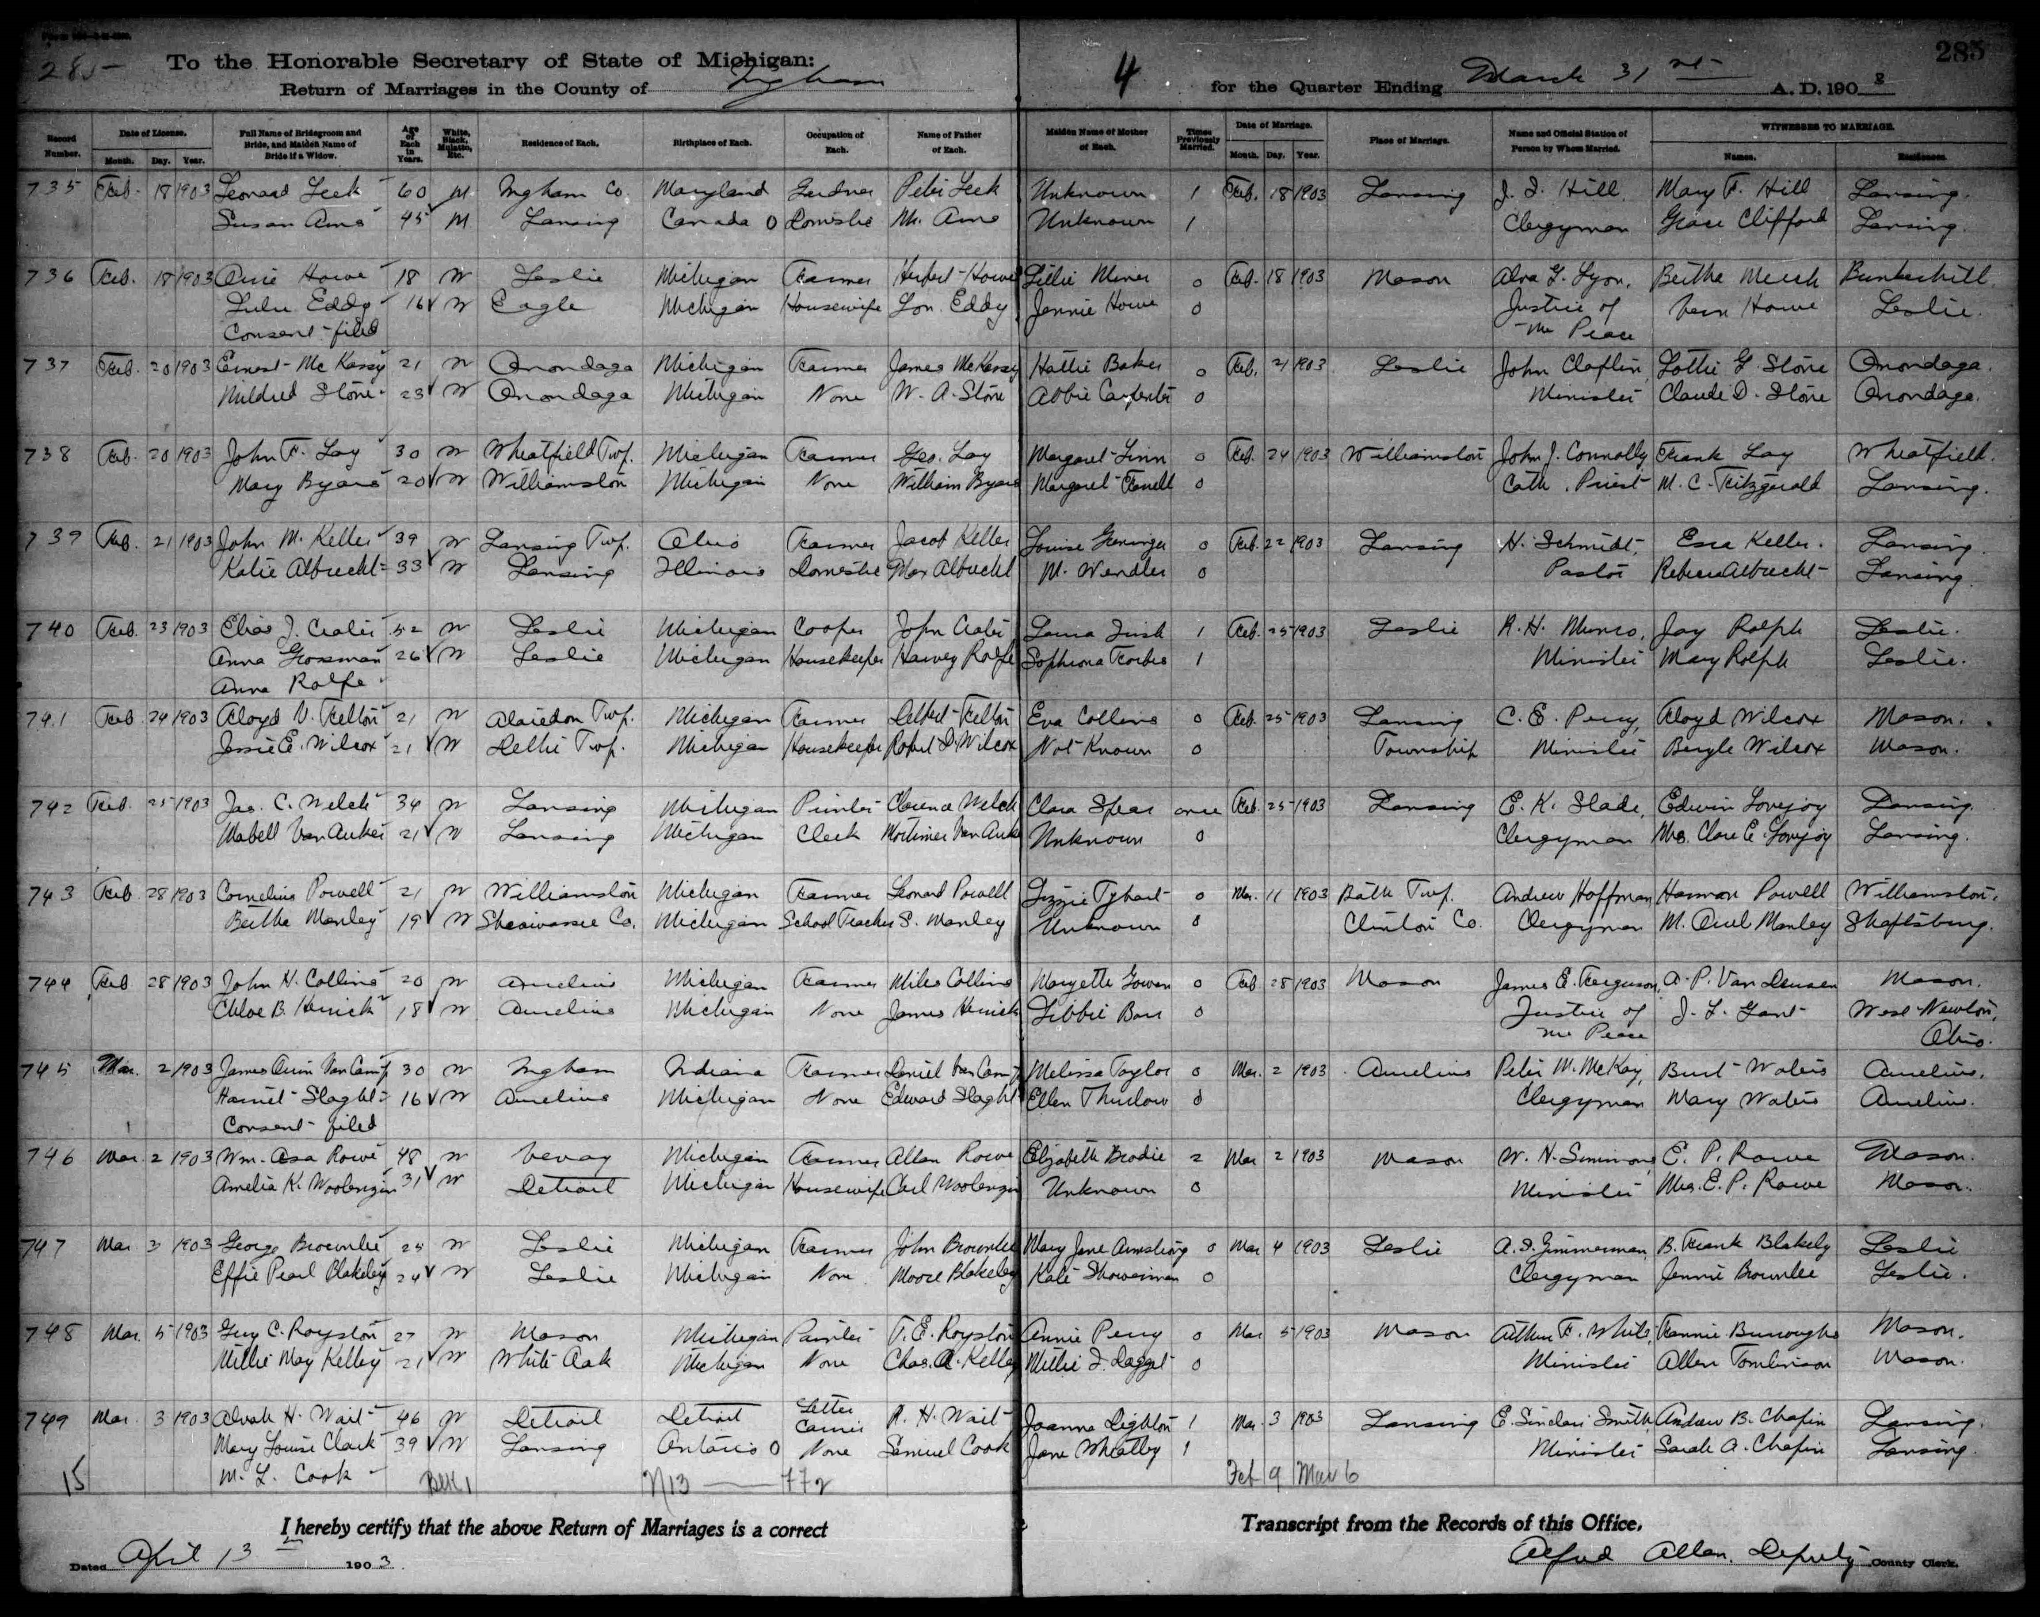 285
To the Honorable Secretary of State of Michigan:
Return of Marriages in the County of Ingham
4 for the Quarter Ending March 31st A. D. 1903
285
Record Number. Date of License. Month. Day. Year. Full Name of Bridegroom and Bride, and Maiden Name of Bride if a Widow. Age of Each in Years. White, Black, Mulatto, Etc. Residence of Each. Birthplace of Each. Occupation of Each. Name of Father of Each. Maiden Name of Mother of Each. Times Previously Married. Date of Marriage. Month. Day. Year. Place of Marriage. Name and Official Station of Person by Whom Married. WITNESSES TO MARRIAGE. Names. Residences.
735 Feb. 18 1903 Leonard Leek 60 M Ingham Co. Maryland Gardner Peter Leek Unknown 1 Feb. 18 1903 Lansing J. I. Hill, Mary F. Hill Lansing.
Susan Ams 45 M Lansing Canada O Domestic Mr. Ams Unknown 1 Clergyman Grace Clifford Lansing.
736 Feb. 18 1903 Howe 18 W Leslie Michigan Farmer Herbert Howe Lillie Miner 0 Feb. 18 1903 Mason Alva G. Lyon, Bertha Meech Bunkerhill
Lulu Eddy 16 W Eagle Michigan Housewife Lon Eddy Jennie Howe 0 Justice of Vern Howe Leslie.
Consent filed the Peace
737 Feb. 20 1903 Ernest McKassy 21 W Onondaga Michigan Farmer James McKassy Hattie Baker 0 Feb. 21 1903 Leslie John Claflin, Lottie G. Stone Onondaga.
Mildred Stone 23 W Onondaga Michigan None W. A. Stone Abbie Carpenter 0 Minister Claude D. Stone Onondaga.
738 Feb. 20 1903 John F. Lay 30 W Wheatfield Twp. Michigan Farmer Geo. Lay Margaret Linn 0 Feb. 24 1903 Williamston John J. Connolly, Frank Lay Wheatfield.
Mary Byars 20 W Williamston Michigan None William Byars Margaret Farrell 0 Cath. Priest M. C. Fitzgerald Lansing.
739 Feb. 21 1903 John M. Keller 39 W Lansing Twp. Ohio Farmer Jacob Keller Louise Greninger 0 Feb. 22 1903 Lansing H. Schmidt, Esra Keller. Lansing.
Katie Albrecht 33 W Lansing Illinois Domestic Max Albrecht M. Wendler 0 Pastor Rebecca Albrecht Lansing.
740 Feb. 23 1903 Elias J. Crater 52 W Leslie Michigan Cooper John Crater Laura Fish 1 Feb. 25 1903 Leslie R. H. Munro, Jay Rolph Leslie.
Anna Grossman 26 W Leslie Michigan Housekeeper Harvey Rolfe Sophrona Forbes 1 Minister Mary Rolph Leslie.
Anna Rolfe
741 Feb 24 1903 Floyd V. Felton 21 W Alaiedon Twp. Michigan Farmer Delbert Felton Eva Collins 0 Feb. 25 1903 Lansing C. E. Perry, Floyd Wilcox Mason.
Jessie E. Wilcox 21 W Delhi Twp. Michigan Housekeeper Robert D. Wilcox Not Known 0 Township Minister Beryle Wilcox Mason.
742 Feb. 25 1903 Jas. C. Welch 34 W Lansing Michigan Printer Clarence Welch Clara Spear once Feb. 25 1903 Lansing E. K. Slade, Edwin Lovejoy Lansing.
Mabell Van Auken 21 W Lansing Michigan Clerk Mortimer Van Auke Unknown 0 Clergyman Mrs. Clare E. Lovejoy Lansing.
743 Feb. 28 1903 Cornelius Powell 21 W Williamston Michigan Farmer Leonard Powell Lizzie Tybart 0 Mar. 11 1903 Bath Twp. Andrew Hoffman, Harmon Powell Williamston.
Bertha Manley 19 W Shiawassee Co. Michigan School Teacher S. Manley Unknown 0 Clinton Co. Clergyman M. Manley Shaftsburg.
744 Feb 28 1903 John H. Collins 20 W Aurelius Michigan Farmer Miles Collins Maryette Gowen 0 Feb 28 1903 Mason James E. Ferguson, A. P. Van Deusen Mason.
Chloe B. Herrick 18 W Aurelius Michigan None James Herrick Libbie Barr 0 Justice of J. L. Gant West Newton,
the Peace Ohio.
745 Mar. 2 1903 James Orrin Van Camp 30 W Ingham Indiana Farmer Daniel Van Camp Melissa Taylor 0 Mar. 2 1903 Aurelius Peter M. McKay, Burt Waters Aurelius.
Harriet Slaght 16 W Aurelius Michigan None Edward Slaght Ellen Thurlow 0 Clergyman Mary Waters Aurelius.
Consent filed
746 Mar. 2 1903 Wm. Asa Rowe 48 W Vevay Michigan Farmer Allen Rowe Elizabeth Brodie 2 Mar 2 1903 Mason W. H. Simmons, E. P. Rowe Mason.
Amelia K. Woolengin 31 W Detroit Michigan Housewife Carl Woolengin Unknown 0 Minister Mrs. E. P. Rowe Mason.
747 Mar 3 1903 George Brownlee 25 W Leslie Michigan Farmer John Brownlee Mary Jane Armstrong 0 Mar 4 1903 Leslie A. S. Zimmerman, B. Frank Blakely Leslie
Effie Pearl Blakeley 24 W Leslie Michigan None Moore Blakeley Kate Showerman 0 Clergyman Jennie Brownlee Leslie.
748 Mar. 5 1903 Guy C. Royston 27 W Mason Michigan Painter T. E. Royston Annie Perry 0 Mar 5 1903 Mason Arthur F. White, Fannie Burroughs Mason.
Millie May Kelley 21 W White Oak Michigan None Chas. A. Kelley Millie I. Dagget 0 Minister Allen Tomlinson Mason.
749 Mar. 3 1903 Alvah H. Wait 46 W Detroit Detroit Letter Carrier R. H. Wait Joanna Dighton 1 Mar. 3 1903 Lansing E. Sinclair Smith, Andrew B. Chapin Lansing.
Mary Louise Clark 39 W Lansing Ontario O None Samuel Cook Jane Wheatley 1 Minister Sarah A. Chapin Lansing.
15 M. L. Cook Blk 1 N13 — 77 Feb 9 Mar 6
I hereby certify that the above Return of Marriages is a correct Transcript from the Records of this Office.
Dated April 13 1903. Alfred Allen, Deputy County Clerk.